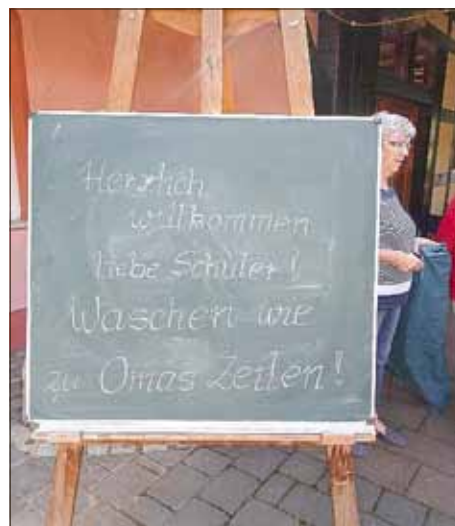 Herzlich
willkommen
liebe Schüler!
Waschen wie
zu Omas Zeiten!